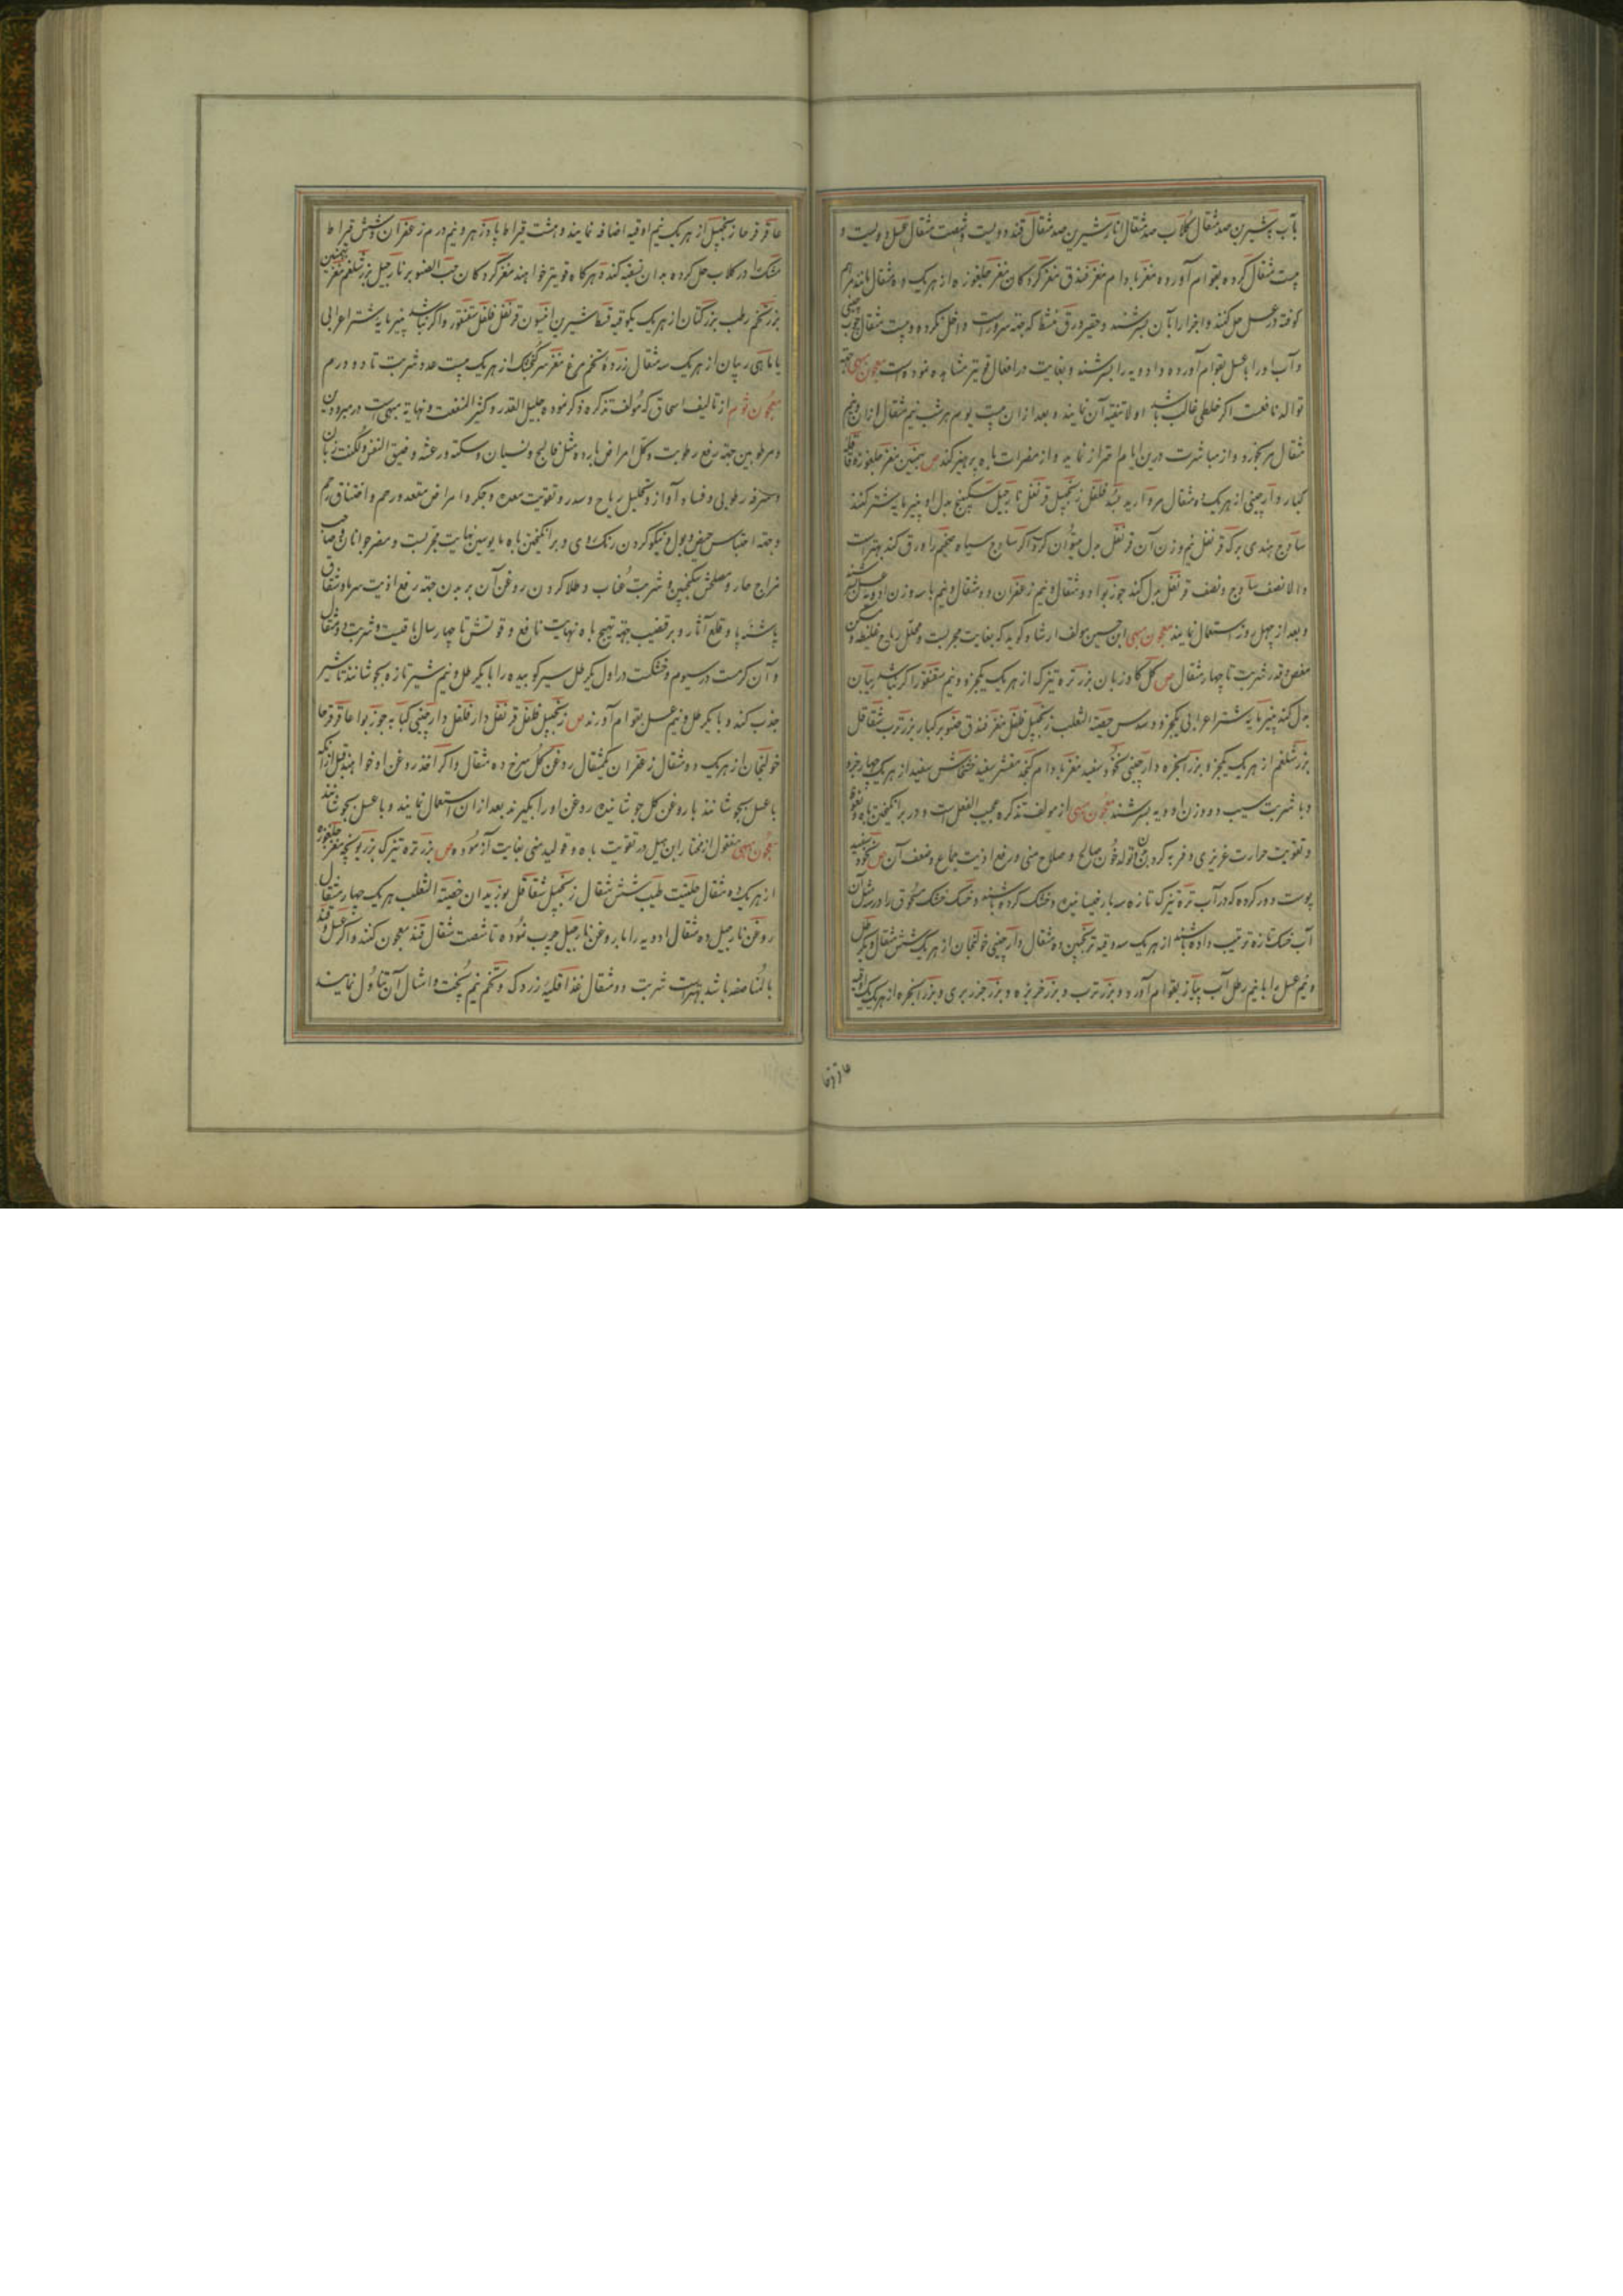 بآب به شیرین صد مثقال کلاب صد مثقال انار شیرین صد مثقال قند دویست و شصت مثقال عسل دویست و
بیست مثقال کرده بقوام آورده مغز بادام مغز فندق مغز کردکان مغز جلغوزه از هریک ده مثقال
کوفته در عسل حل کنند و اجزا را بآن بسرشند و حقیر ورق
و آب او را با عسل بقوام آورده و ادویه را بسرشند و بغایت در افعال قویتر مشاهده نموده است معجون مبهی جهة
توالد نافعست اکر خلطی غالب باشد اولا تنقیه آن نمایند و بعد از آن بیست یوم هر شب نیم مثقال
مثقال بخورد و از مباشرت درین ایام احتراز نماید و از مضرات باه پرهیز کند ص بهمنین مغز جلغوزه قاقله
کبار دارچینی از هریک ده مثقال مروارید فلفل زنجبیل قرنفل نارجیل سکبینج بدل او پنیر مایه شتر کنند
ساذج هندی برک قرنفل نیم وزن آن قرنفل بدل میتوان کرد و اکر ساذج سیاه ضخیم را ورق کنند بهتر است
والا نصف ساذج و نصف قرنفل بدل کنند جوزبوا دو مثقال و نیم زعفران دو مثقال و نیم با سه وزن ادویه عسل بسرشند
و بعد از چهل روز استعمال نمایند معجون مبهی ابن حسین مولف ارشاد کوید که بغایت مجربست و محلل ریاح غلیظه و مسکن
مغص و قدر شربت تا چهار مثقال ص کل کاوزبان بزر تره تیزک از هریک یکجزو و نیم سقنقور اکر نباشد ربیان
بدل کنند پنیر مایه شتر اعرابی یکجزو و سدس خصیة الثعلب زنجبیل فلفل مغز فندق صنوبر کبار بزر ترب شقاقل
بزر شلغم از هریک یکجزو بزر انجره دارچینی نخود سفید مغز بادام کنجد مقشر سفید خشخاش سفید از هریک چهار جزو
و با شربت سیب دو وزن ادویه بسرشند معجون مبهی از مولف تذکره عجیب الفعل است و در برانکیختن باه و نعوظ
و تقویت حرارت غریزی و فربه کردن بدن و تولد خون صالح و صلاح منی و رفع اذیت جماع و ضعف آن ص نخود سفید
پوست دور کرده که در آب تره تیزک تازه سه بار خیسانیده و خشک کرده باشند و خسک خشک مسحوق را در مثل آن
آب خسک تازه ترتیب داده باشند از هریک سه وقیه ترنجبین ده مثقال دارچینی خولنجان از هریک شش مثقال یکرطل
و نیم عسل را با نیم رطل آب پیاز بقوام آورد و بزر ترب و بزر خربزه و بزر جزر بری و بزر انجره از هریک یک اوقیه
عاقرقرحا
عاقرقرحا زنجبیل از هریک نیم اوقیه اضافه نمایند و هشت قیراط پادزهر و نیم درم زعفران و شش قیراط
مشک در کلاب حل کرده بدان تسقیه کنند و هرکاه قویتر خواهند مغز کردکان حب الصنوبر نارجیل بزر شلغم مغز بهمنین
بزر رطب بزر کتان از هریک یکوقیه قسط شیرین افیون قرنفل فلفل سقنقور و اکر نباشد پنیر مایه شتر اعرابی
یا ماهی ربیان از هریک سه مثقال زرده تخم مرغ مغز سر کنجشک از هریک بیست عدد شربت تا دو درم
معجون ثوم از تالیف اسحاق که مولف تذکره ذکر نموده جلیل القدر و کثیر المنفعت و نهایة مبهی است در مبرودین
و مرطوبین جهة رفع رطوبت و کل امراض بارده مثل فالج و نسیان و سکته و رعشه و ضیق النفس و لکنت زبان
و سرفه رطوبی و فساد آواز و تحلیل ریاح و سدر و تقویت معده و جکر و امراض مقعد و رحم و اختناق رحم
و جهة احتباس حیض و بول و نیکو کردن رنک روی و برانکیختن باه مایوسین نهایت مجربست و مضر جوانان و صاحب
مزاج حار و مصلحش سکنجبین و شربت عناب و طلا کردن روغن آن بر بدن جهة رفع اذیت سرما و شقاق
پاشنه پا و قلع آثار و بر قضیب جهة تهیج باه نهایت نافع و قوتش تا چهار سال باقیست و شربت دو مثقال
و آن کرمست در سیوم و خشکست در اول یکرطل سیر کوبیده را با یکرطل و نیم شیر تازه بجوشانند تا شیر
جذب کند و با یکرطل و نیم عسل بقوام آورند ص زنجبیل فلفل قرنفل دارفلفل دارچینی کبابه جوزبوا عاقرقرحا
خولنجان از هریک ده مثقال زعفران یکمثقال روغن کل سرخ ده مثقال و اکر اخذ روغن او خواهند قبل از آنکه
با عسل بجوشانند با روغن کل جوشانیده روغن او را بکیرند بعد از آن استعمال نمایند و با عسل بجوشانند
معجون مبهی منقول از مختار ابن هبل در تقویت باه و تولید منی بغایت آزموده ص بزر تره تیزک بزر یونجه مغز جلغوزه
از هریک ده مثقال حلتیت طیب شش مثقال زنجبیل شقاقل بوزیدان خصیة الثعلب هریک چهار مثقال
روغن نارجیل ده مثقال ادویه را با روغن نارجیل چرب نموده تا شصت مثقال قند معجون کنند و اکر عسل و قند
بالمناصفه باشد بهتر است شربت دو مثقال غذا قلیه زردک و تخم نیم پخت و امثال آن تناول نمایند